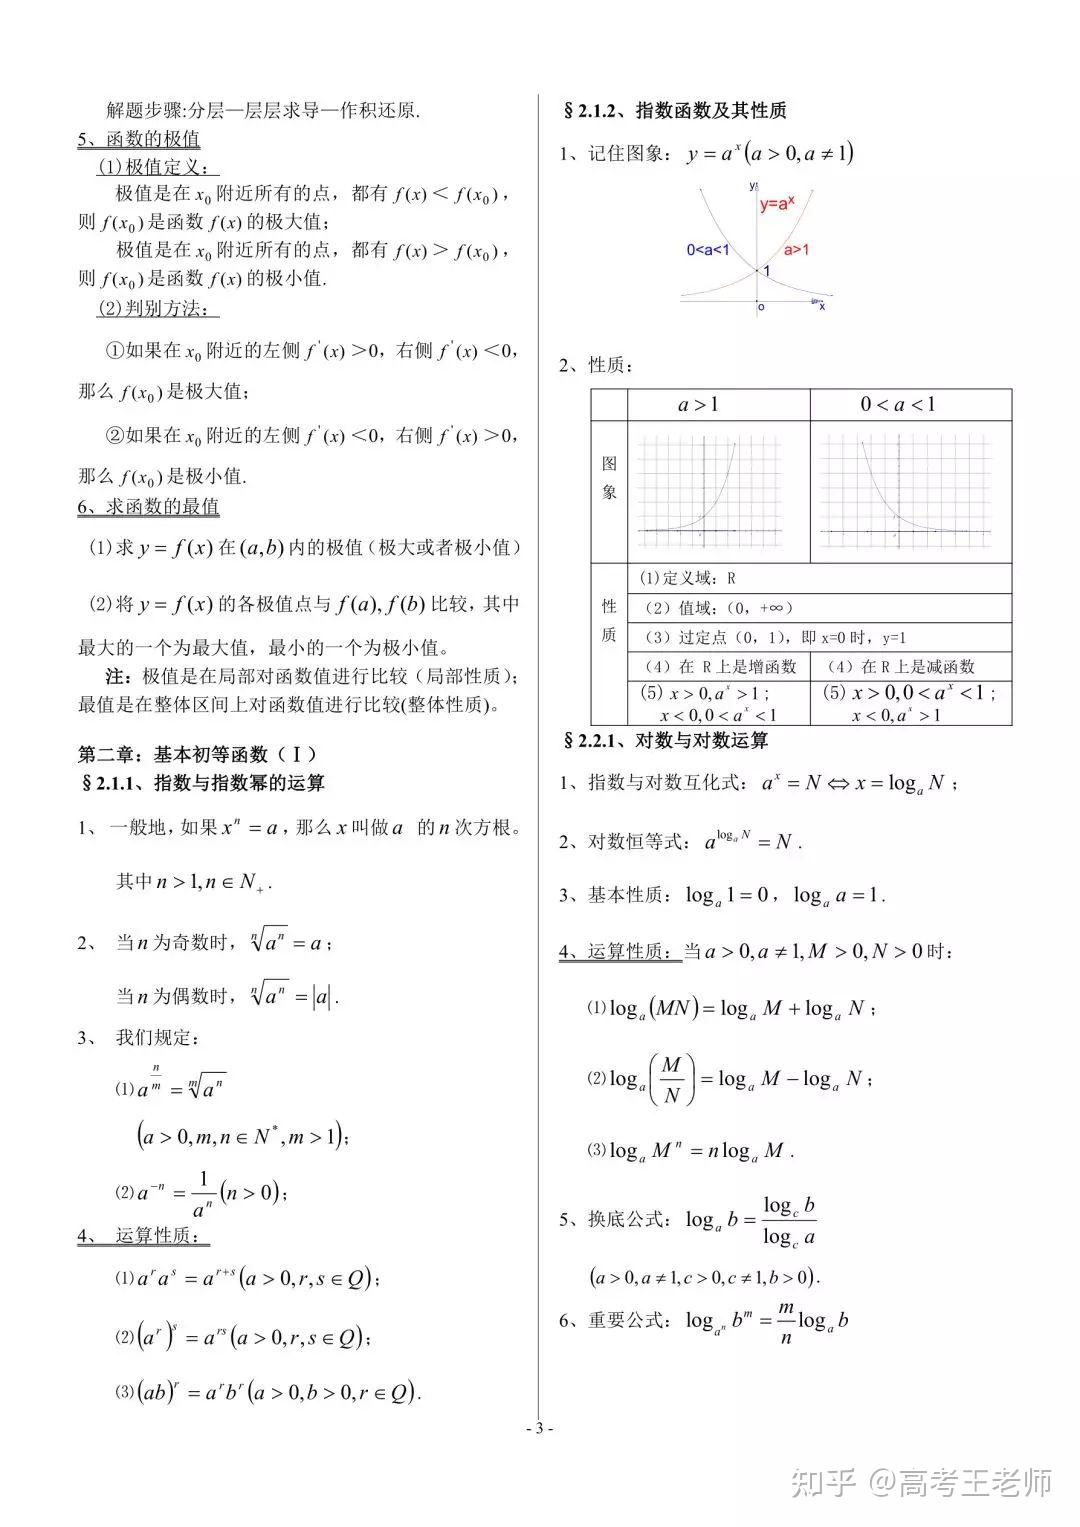 解题步骤:分层—层层求导—作积还原.
5、函数的极值
(1)极值定义：
极值是在 x₀ 附近所有的点，都有 f(x)＜f(x₀)，
则 f(x₀) 是函数 f(x) 的极大值；
极值是在 x₀ 附近所有的点，都有 f(x)＞f(x₀)，
则 f(x₀) 是函数 f(x) 的极小值.
(2)判别方法：
①如果在 x₀ 附近的左侧 f'(x)＞0，右侧 f'(x)＜0，
那么 f(x₀) 是极大值；
②如果在 x₀ 附近的左侧 f'(x)＜0，右侧 f'(x)＞0，
那么 f(x₀) 是极小值.
6、求函数的最值
(1)求 y = f(x) 在 (a,b) 内的极值（极大或者极小值）
(2)将 y = f(x) 的各极值点与 f(a), f(b) 比较，其中
最大的一个为最大值，最小的一个为极小值。
注：极值是在局部对函数值进行比较（局部性质）；
最值是在整体区间上对函数值进行比较(整体性质)。
第二章：基本初等函数（Ⅰ）
§2.1.1、指数与指数幂的运算
1、 一般地，如果 xⁿ = a，那么 x 叫做 a 的 n 次方根。
其中 n > 1, n ∈ N₊.
2、 当 n 为奇数时，ⁿ√(aⁿ) = a；
当 n 为偶数时，ⁿ√(aⁿ) = |a|.
3、 我们规定：
⑴ a^(n/m) = ᵐ√(aⁿ)
(a > 0, m, n ∈ N*, m > 1)；
⑵ a⁻ⁿ = 1/aⁿ (n > 0)；
4、 运算性质：
⑴ aʳaˢ = aʳ⁺ˢ (a > 0, r, s ∈ Q)；
⑵ (aʳ)ˢ = aʳˢ (a > 0, r, s ∈ Q)；
⑶ (ab)ʳ = aʳbʳ (a > 0, b > 0, r ∈ Q).
§2.1.2、指数函数及其性质
1、记住图象：y = aˣ (a > 0, a ≠ 1)
y
y=aˣ
0<a<1
a>1
1
o
x
2、性质：
a > 1
0 < a < 1
图
象
性
质
(1)定义域：R
（2）值域：（0，+∞）
（3）过定点（0，1），即 x=0 时，y=1
（4）在 R上是增函数
（4）在R上是减函数
(5) x > 0, aˣ > 1；
x < 0, 0 < aˣ < 1
(5) x > 0, 0 < aˣ < 1；
x < 0, aˣ > 1
§2.2.1、对数与对数运算
1、指数与对数互化式：aˣ = N ⇔ x = logₐ N；
2、对数恒等式：a^(logₐ N) = N.
3、基本性质：logₐ 1 = 0，logₐ a = 1.
4、运算性质：当 a > 0, a ≠ 1, M > 0, N > 0 时：
⑴ logₐ (MN) = logₐ M + logₐ N；
⑵ logₐ (M/N) = logₐ M − logₐ N；
⑶ logₐ Mⁿ = n logₐ M.
5、换底公式：logₐ b = log_c b / log_c a
(a > 0, a ≠ 1, c > 0, c ≠ 1, b > 0).
6、重要公式：log_(aⁿ) bᵐ = (m/n) logₐ b
- 3 -
知乎 @高考王老师